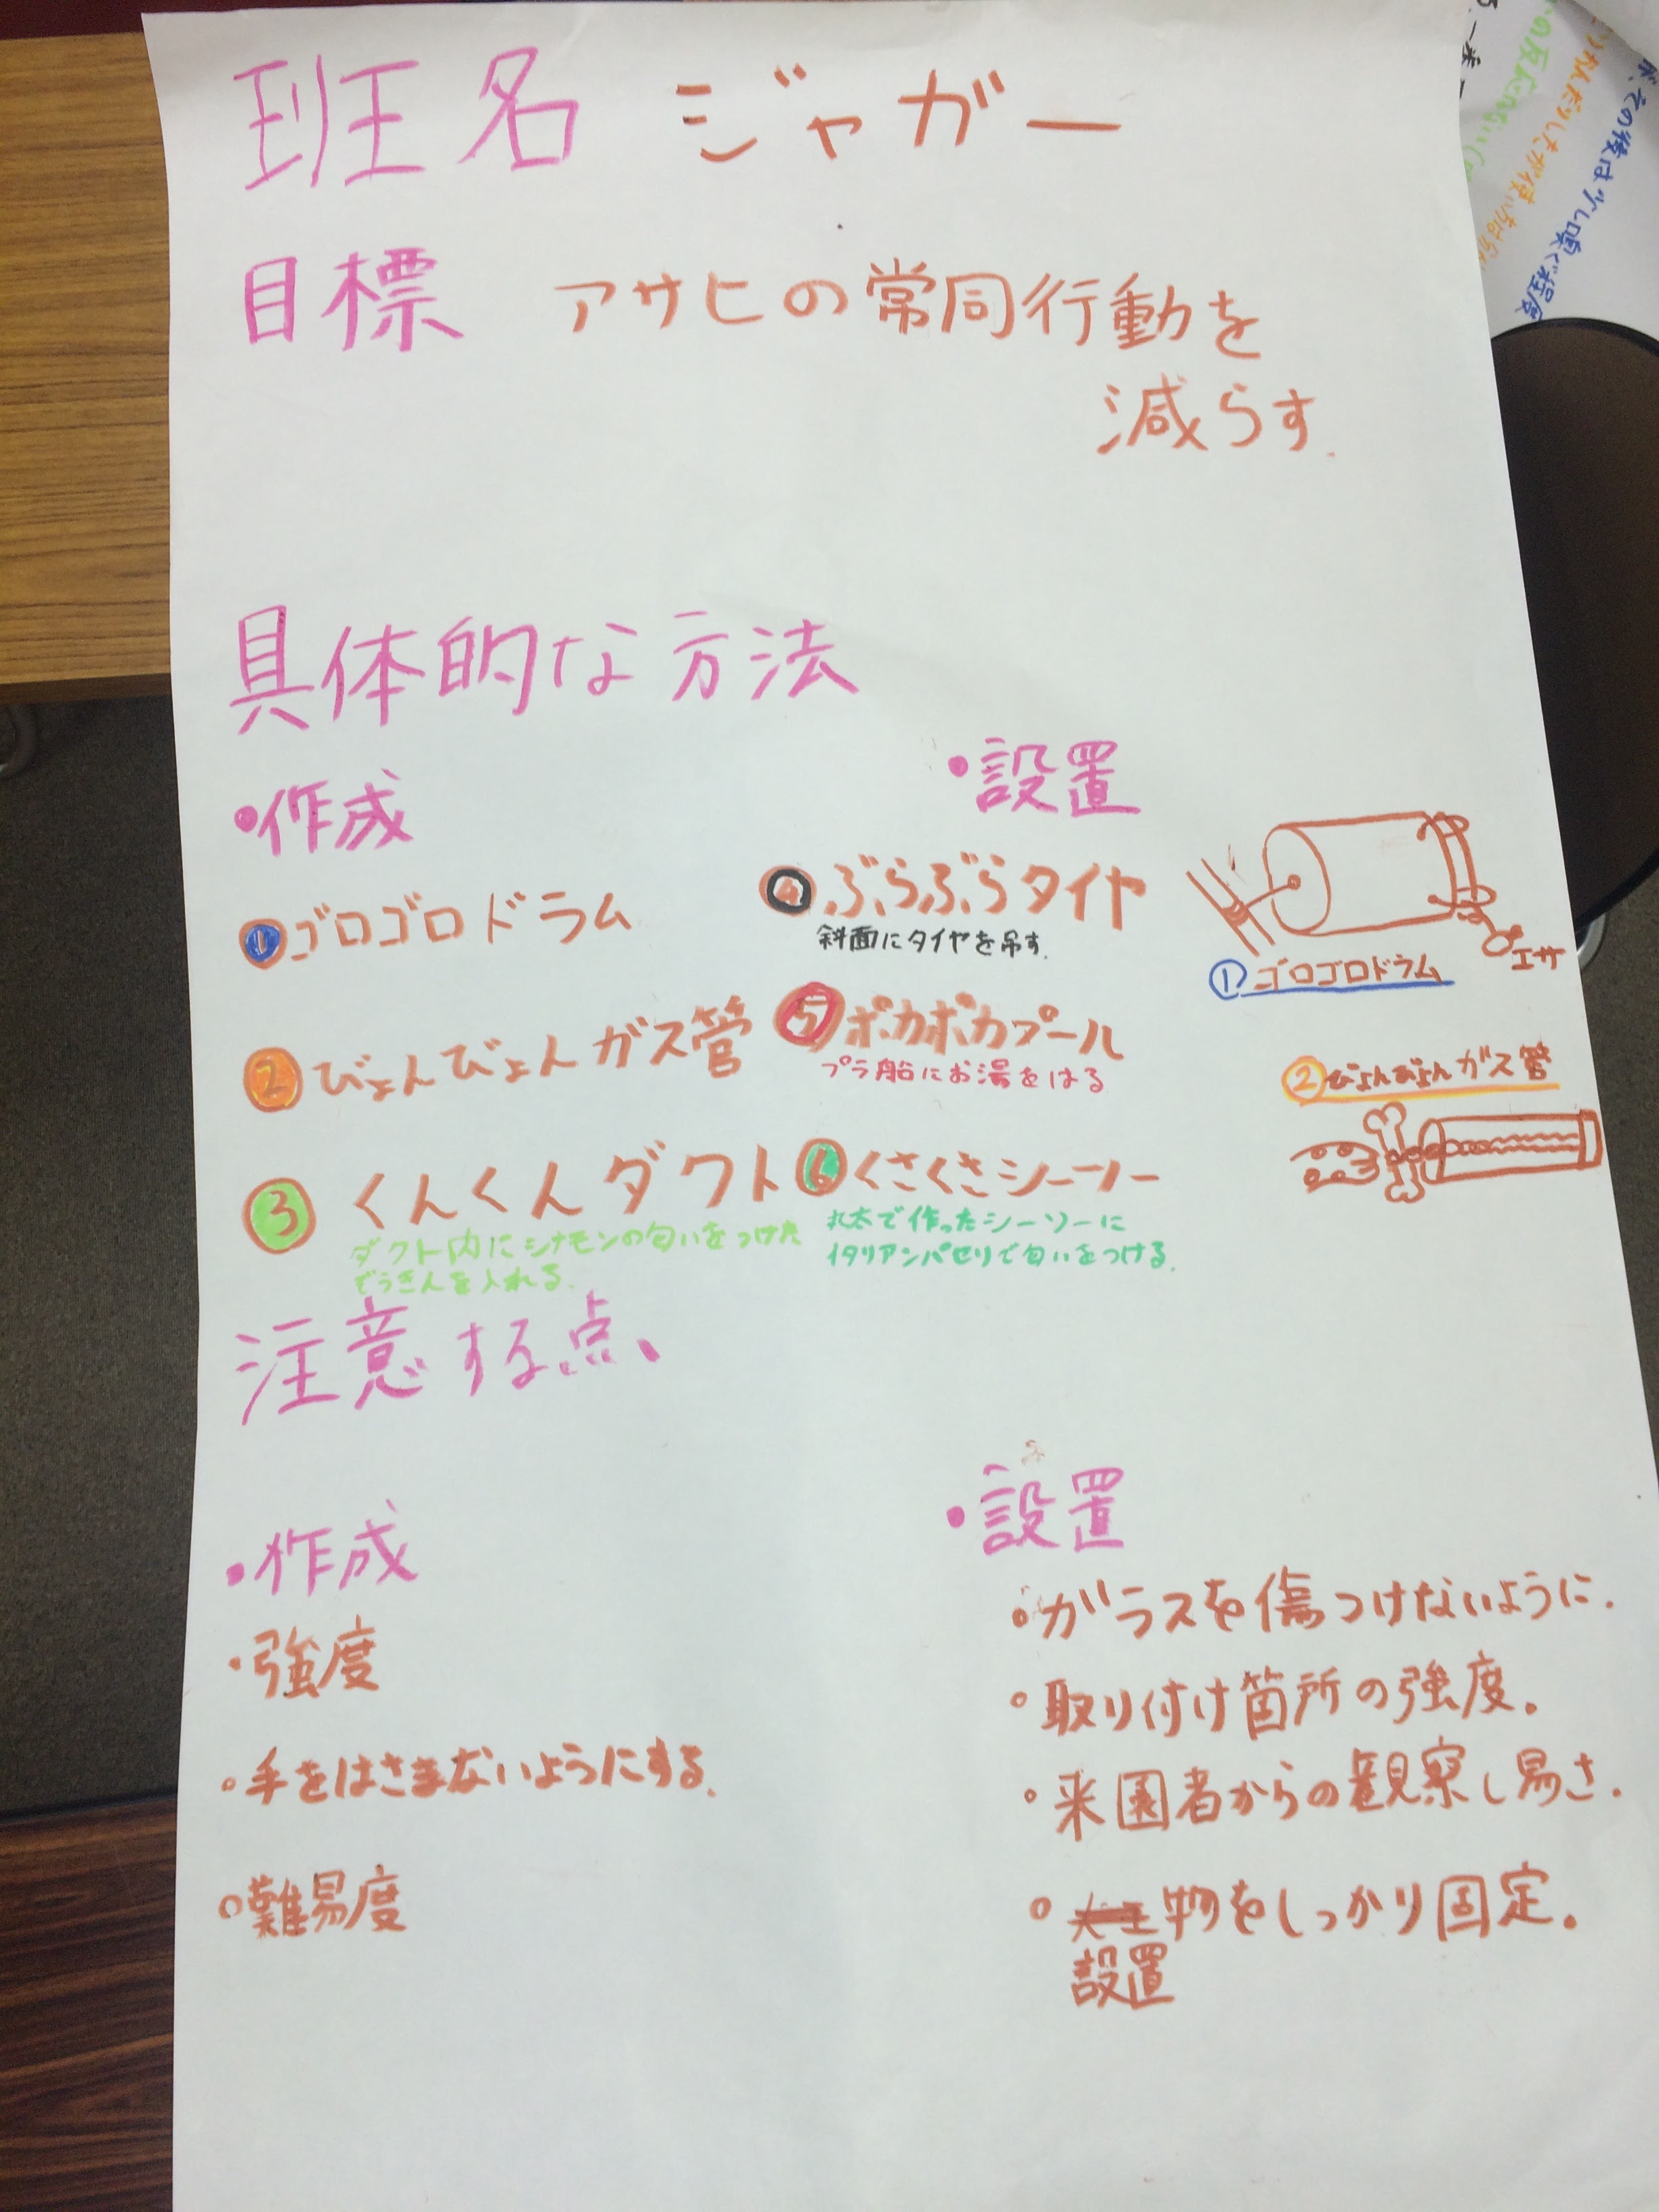 班名 ジャガー
目標 アサヒの常同行動を
減らす.
具体的な方法
・作成
①ゴロゴロドラム
②びよんびよんガス管
③くんくんダクト
ダクト内にシナモンの匂いをつけた
ぞうきんを入れる.
・設置
④ぶらぶらタイヤ
斜面にタイヤを吊す.
⑤ポカポカプール
プラ船にお湯をはる
⑥くさくさシーソー
丸太で作ったシーソーに
イタリアンパセリで匂いをつける.
エサ
①ゴロゴロドラム
②びよんびよんガス管
注意する点、
・作成
・強度
・手をはさまないようにする.
○難易度
・設置
・ガラスを傷つけないように.
・取り付け箇所の強度。
・来園者からの観察し易さ.
○物をしっかり固定。
設置
その後は少し嗅ぐ程度